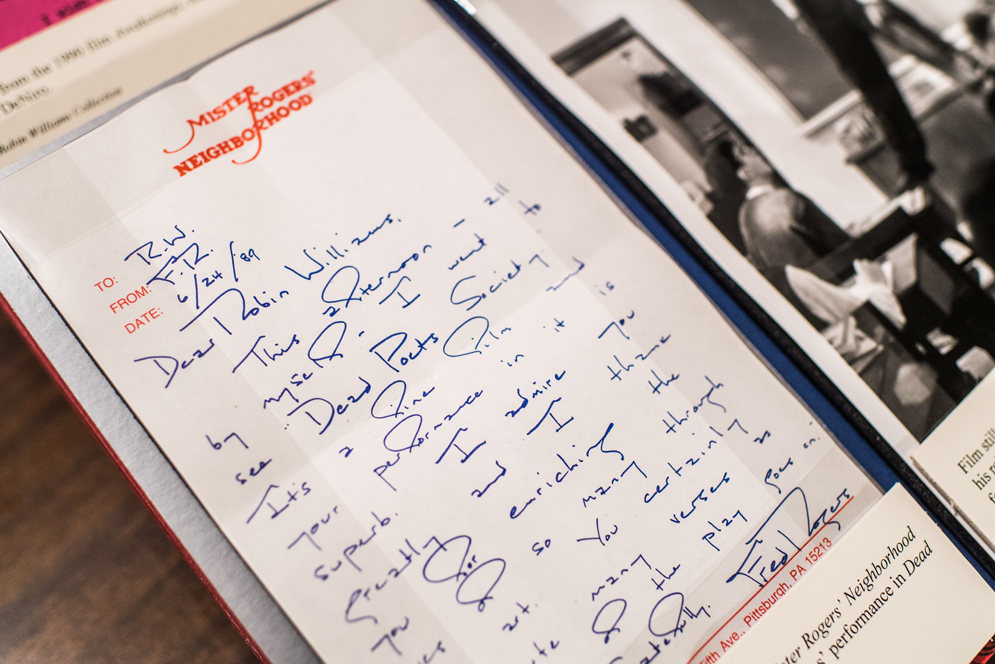 from the 1990 film Awakenings,
DeNiro.
Robin Williams Collection
MISTER
ROGERS'
NEIGHBORHOOD
TO: R.W.
FROM: F.R.
DATE: 6/24/89
Dear Robin Williams.
This afternoon - all
by myself - I went to
see Dead Poets Society
It's a fine film and
your performance in it is
superb. I admire you
greatly and I thank
you for enriching the
of so many through
art. You certainly
many verses as
of the play goes on.
Fred Rogers
Fifth Ave., Pittsburgh, PA 15213
Film
his
Rogers' Neighborhood
performance in Dead